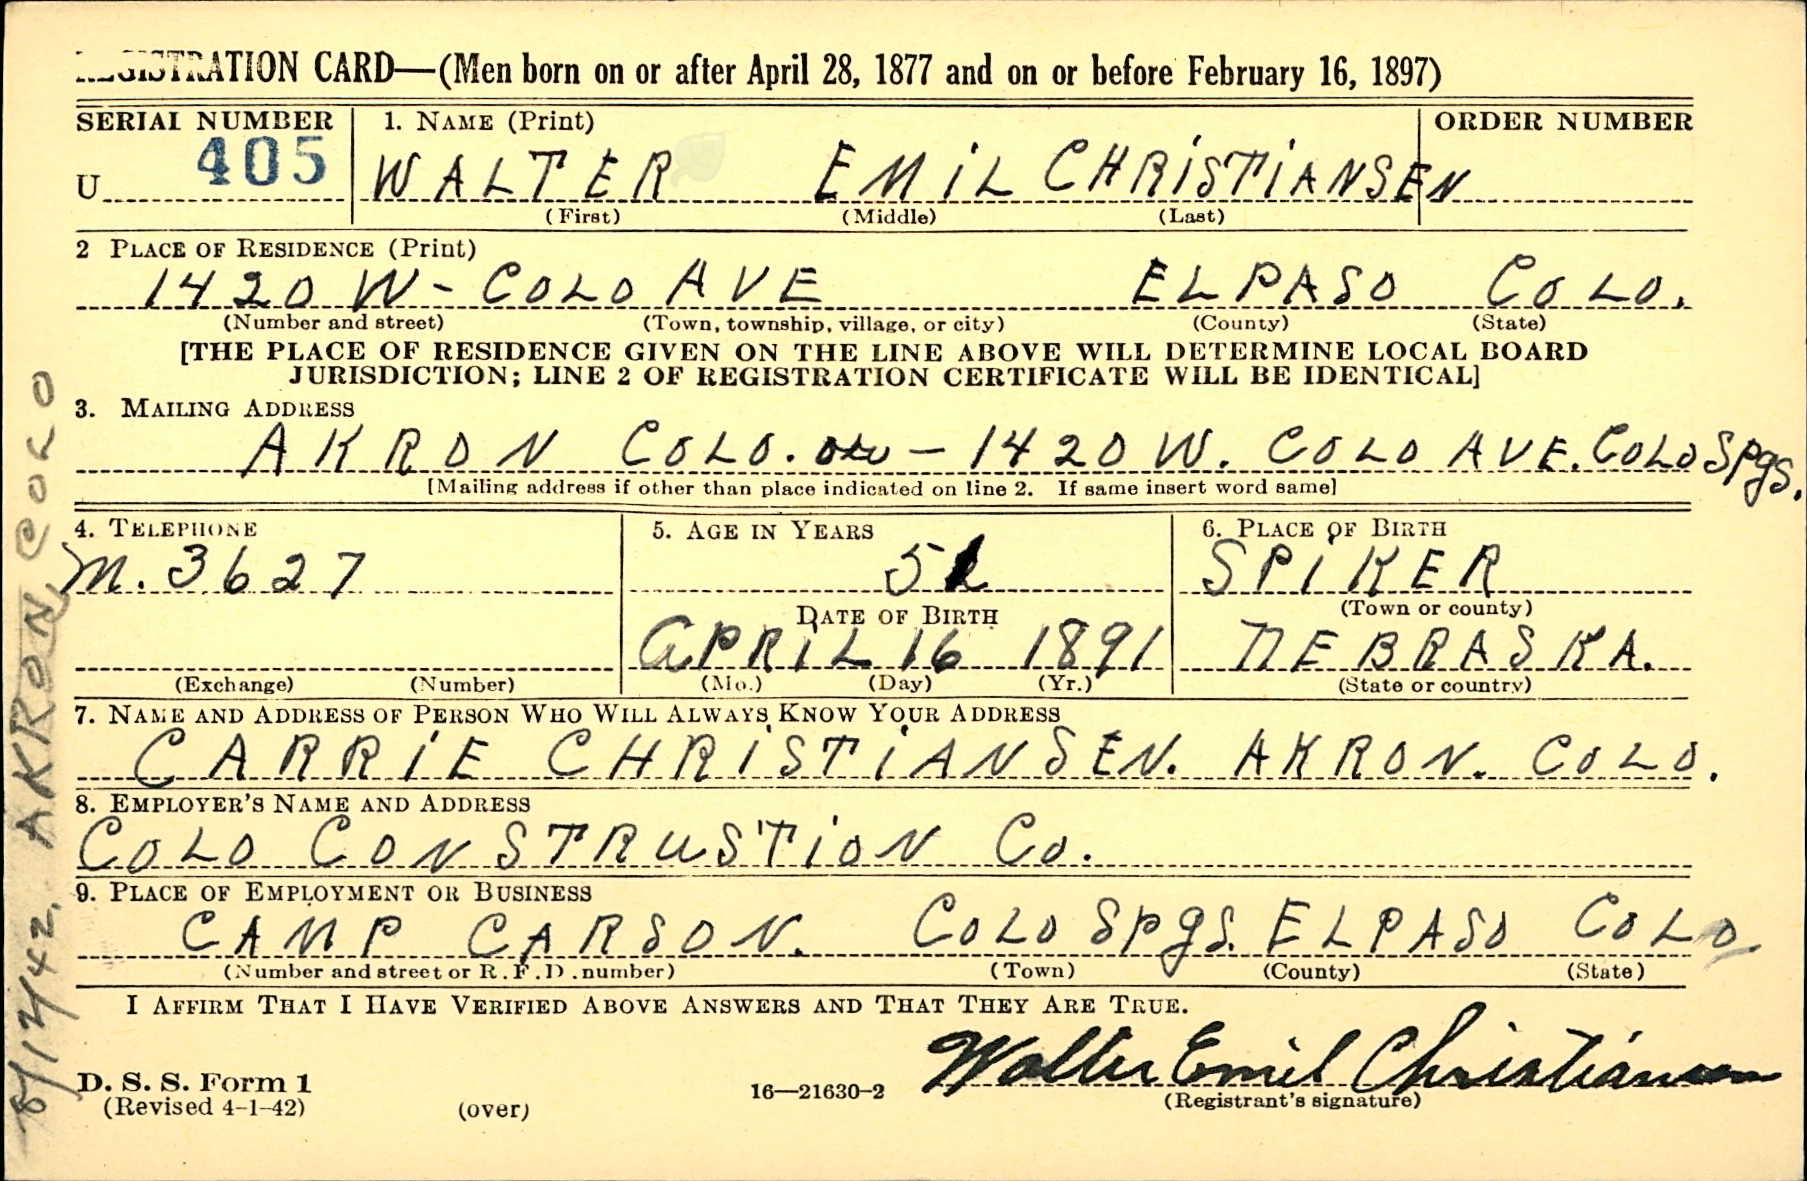 REGISTRATION CARD—(Men born on or after April 28, 1877 and on or before February 16, 1897)
SERIAL NUMBER 1. NAME (Print) ORDER NUMBER
U 405 WALTER EMIL CHRISTIANSEN
(First) (Middle) (Last)
2 PLACE OF RESIDENCE (Print)
1420 W - COLO AVE ELPASO COLO.
(Number and street) (Town, township, village, or city) (County) (State)
[THE PLACE OF RESIDENCE GIVEN ON THE LINE ABOVE WILL DETERMINE LOCAL BOARD
JURISDICTION; LINE 2 OF REGISTRATION CERTIFICATE WILL BE IDENTICAL]
3. MAILING ADDRESS
AKRON COLO. — 1420 W. COLO AVE. COLO Spgs.
[Mailing address if other than place indicated on line 2. If same insert word same]
4. TELEPHONE 5. AGE IN YEARS 6. PLACE OF BIRTH
M. 3627 51 SPIKER
DATE OF BIRTH (Town or county)
APRIL 16 1891 NEBRASKA.
(Exchange) (Number) (Mo.) (Day) (Yr.) (State or country)
7. NAME AND ADDRESS OF PERSON WHO WILL ALWAYS KNOW YOUR ADDRESS
CARRIE CHRISTIANSEN. AKRON. COLO.
8. EMPLOYER'S NAME AND ADDRESS
COLO CONSTRUSTION Co.
9. PLACE OF EMPLOYMENT OR BUSINESS
CAMP CARSON. COLO Spgs. ELPASO COLO
(Number and street or R. F. D. number) (Town) (County) (State)
I AFFIRM THAT I HAVE VERIFIED ABOVE ANSWERS AND THAT THEY ARE TRUE.
Walter Emil Christiansen
D. S. S. Form 1 16—21630-2 (Registrant's signature)
(Revised 4-1-42) (over)
8/12/42. AKRON, COLO